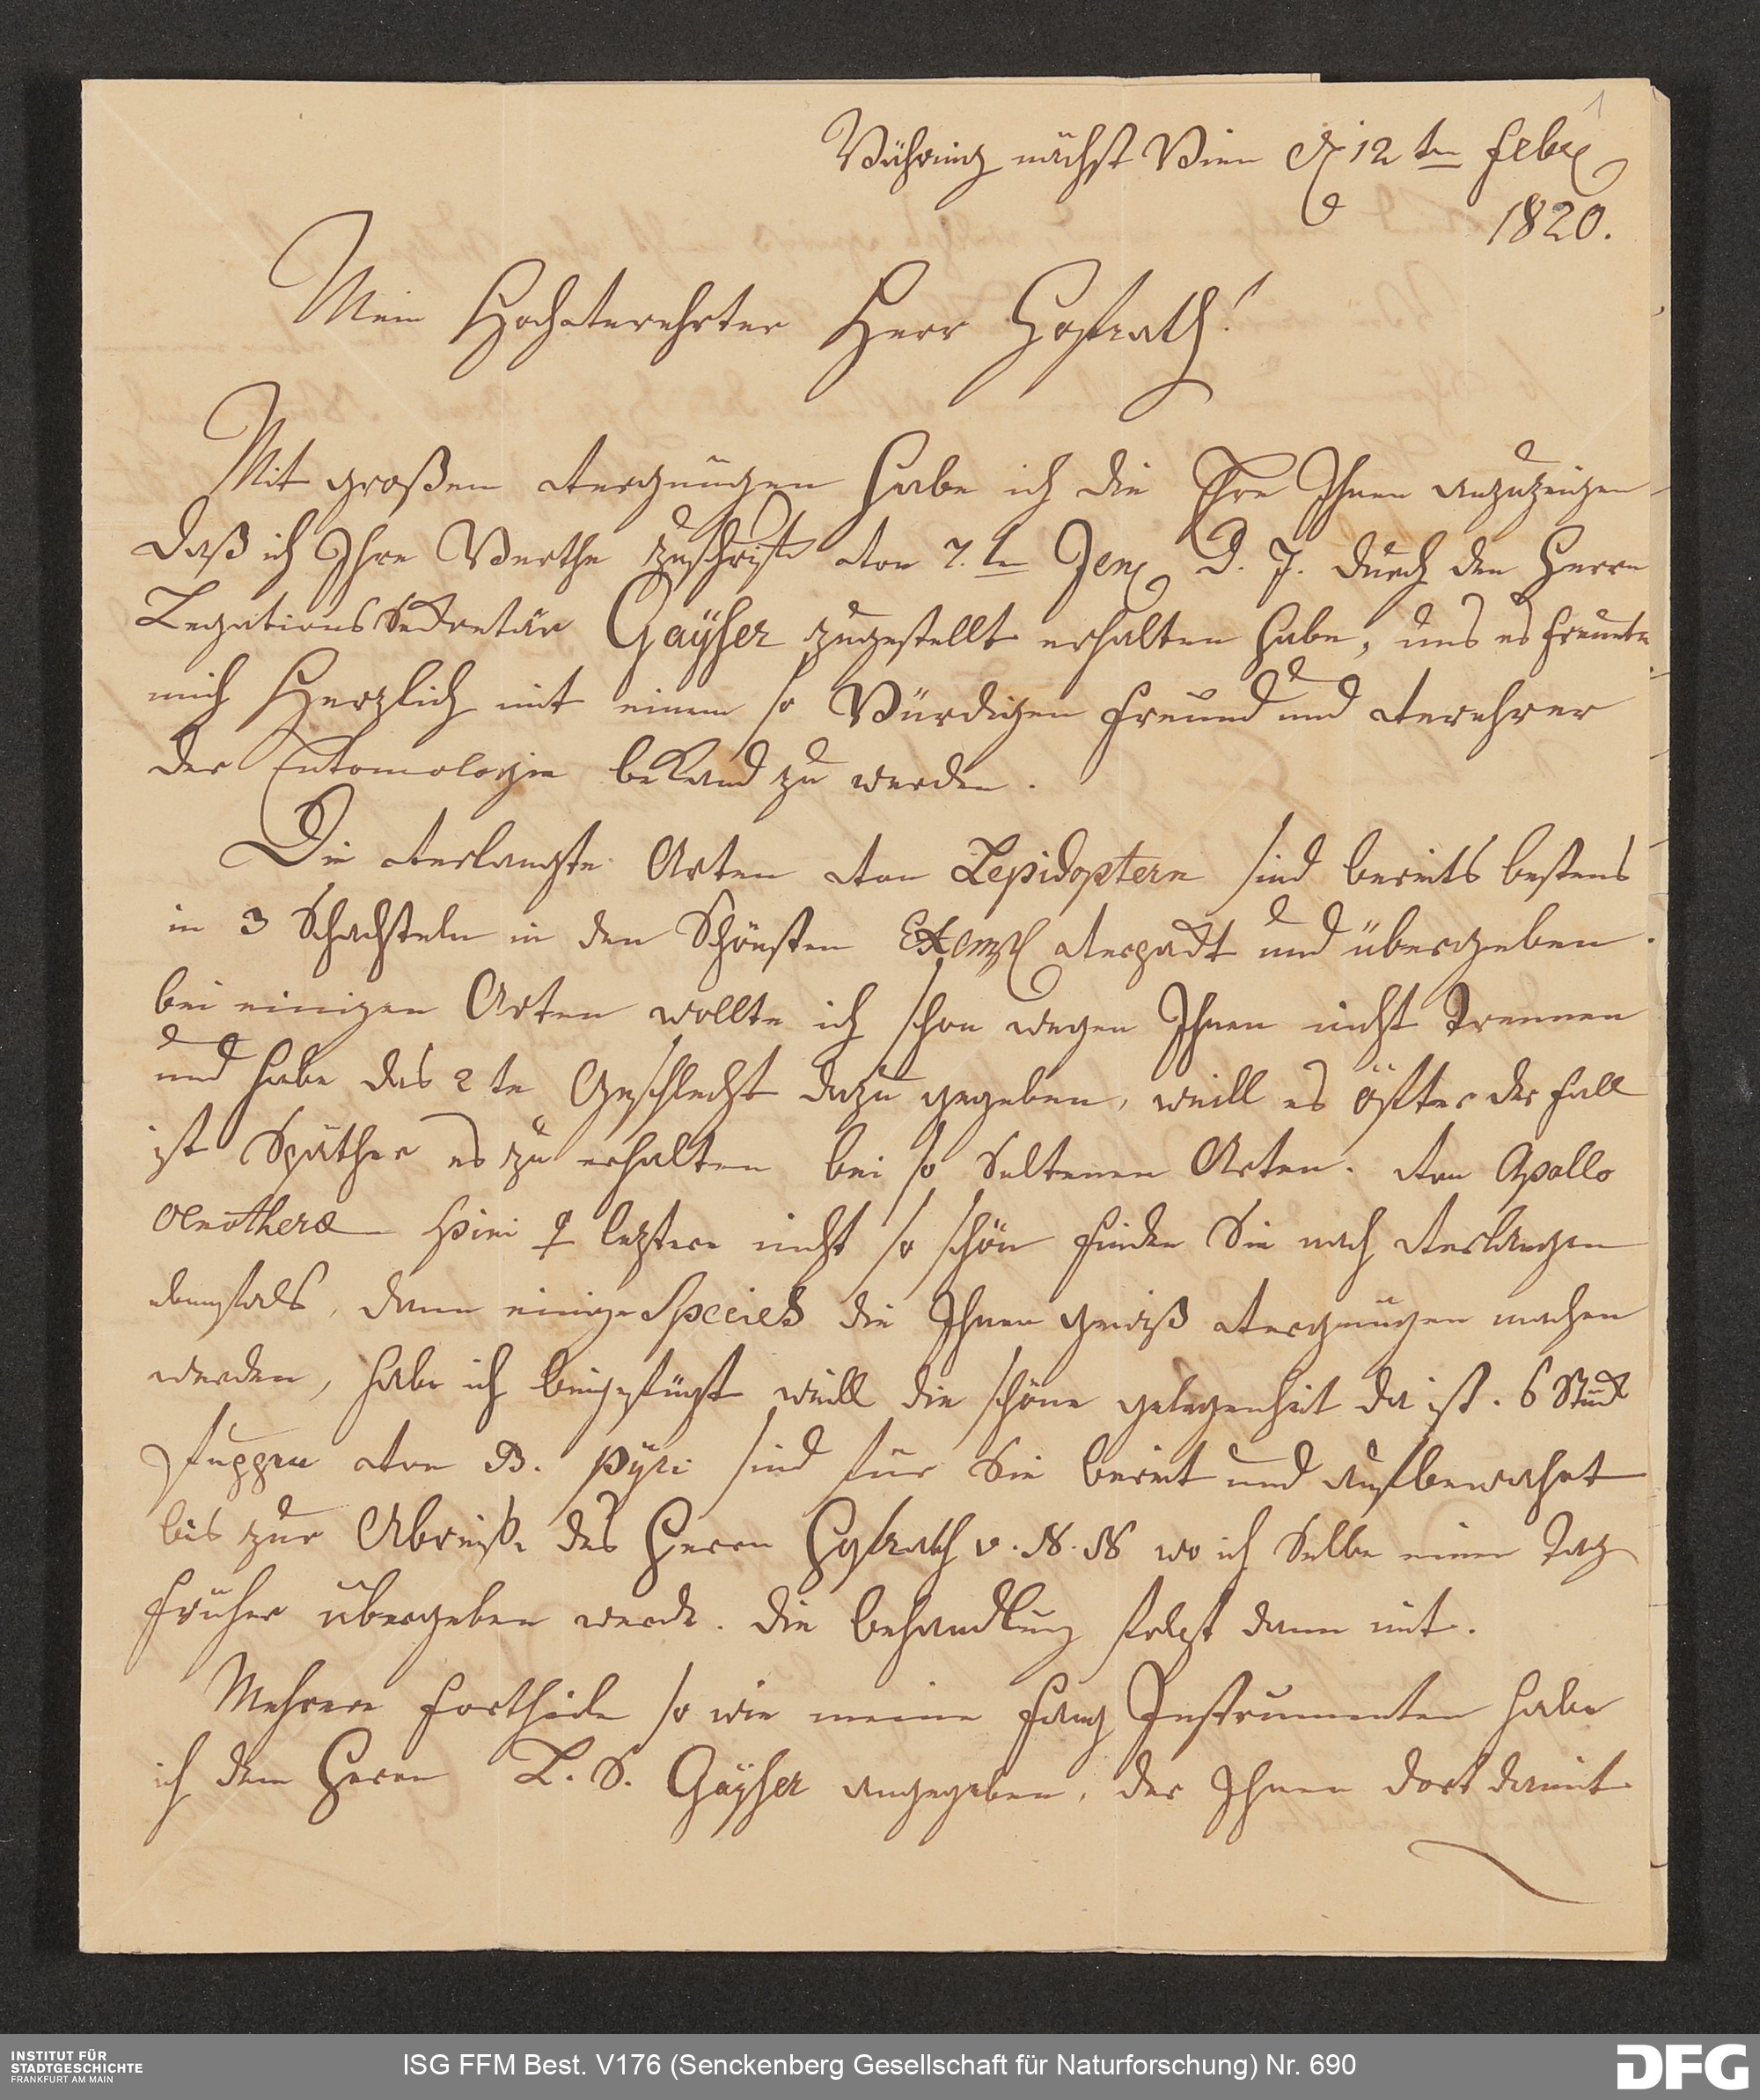 1
Währing nächst Wien d 12 ten Febr
1820.
Mein Hochverehrter Herr Hofrath!
Mit großen vergnügen habe ich die Ehre Ihnen anzuzeigen
daß ich Ihre Werthe zuschrift von 7. ten Jen d. J. durch den Herrn
Legations Sekretär Gaÿser zugestellt erhalten habe, und es freuete
mich Herzlich mit einem so Würdigen freund und verehrer
der Entomologie bekand zu werden.
Die verlangte Arten von Lepidoptern sind bereits bestens
in 3 Schachteln in den Schönsten Exempl verpackt und übergeben.
bei einigen Arten wollte ich schon wegen Ihnen nicht Trennen
und habe das 2 te Geschlecht dazu gegeben, weill es öfter der fall
ist Späther es zu erhalten bei so Seltenen Arten. von Apollo
Oenotheræ Pini ♀ leztere nicht so schön finden Sie nach verlangen
ebenfals, dann einige Species die Ihnen gewiß vergnügen machen
werden, habe ich beigefügt weill die schöne gelegenheit da ist. 6 Stück
Puppen von B. Pÿri sind für Sie bereit und aufbewahrt
bis zur Abreise des Herrn Hofrath v. N. N wo ich Selbe einen Tag
früher übergeben werde. die behandlung folgt dann mit.
Mehrere fortheile so wie meine fang Instrumenten habe
ich dem Herrn L. S. Gaÿser angegeben, der Ihnen dort damit
INSTITUT FÜR
STADTGESCHICHTE
FRANKFURT AM MAIN
ISG FFM Best. V176 (Senckenberg Gesellschaft für Naturforschung) Nr. 690
DFG